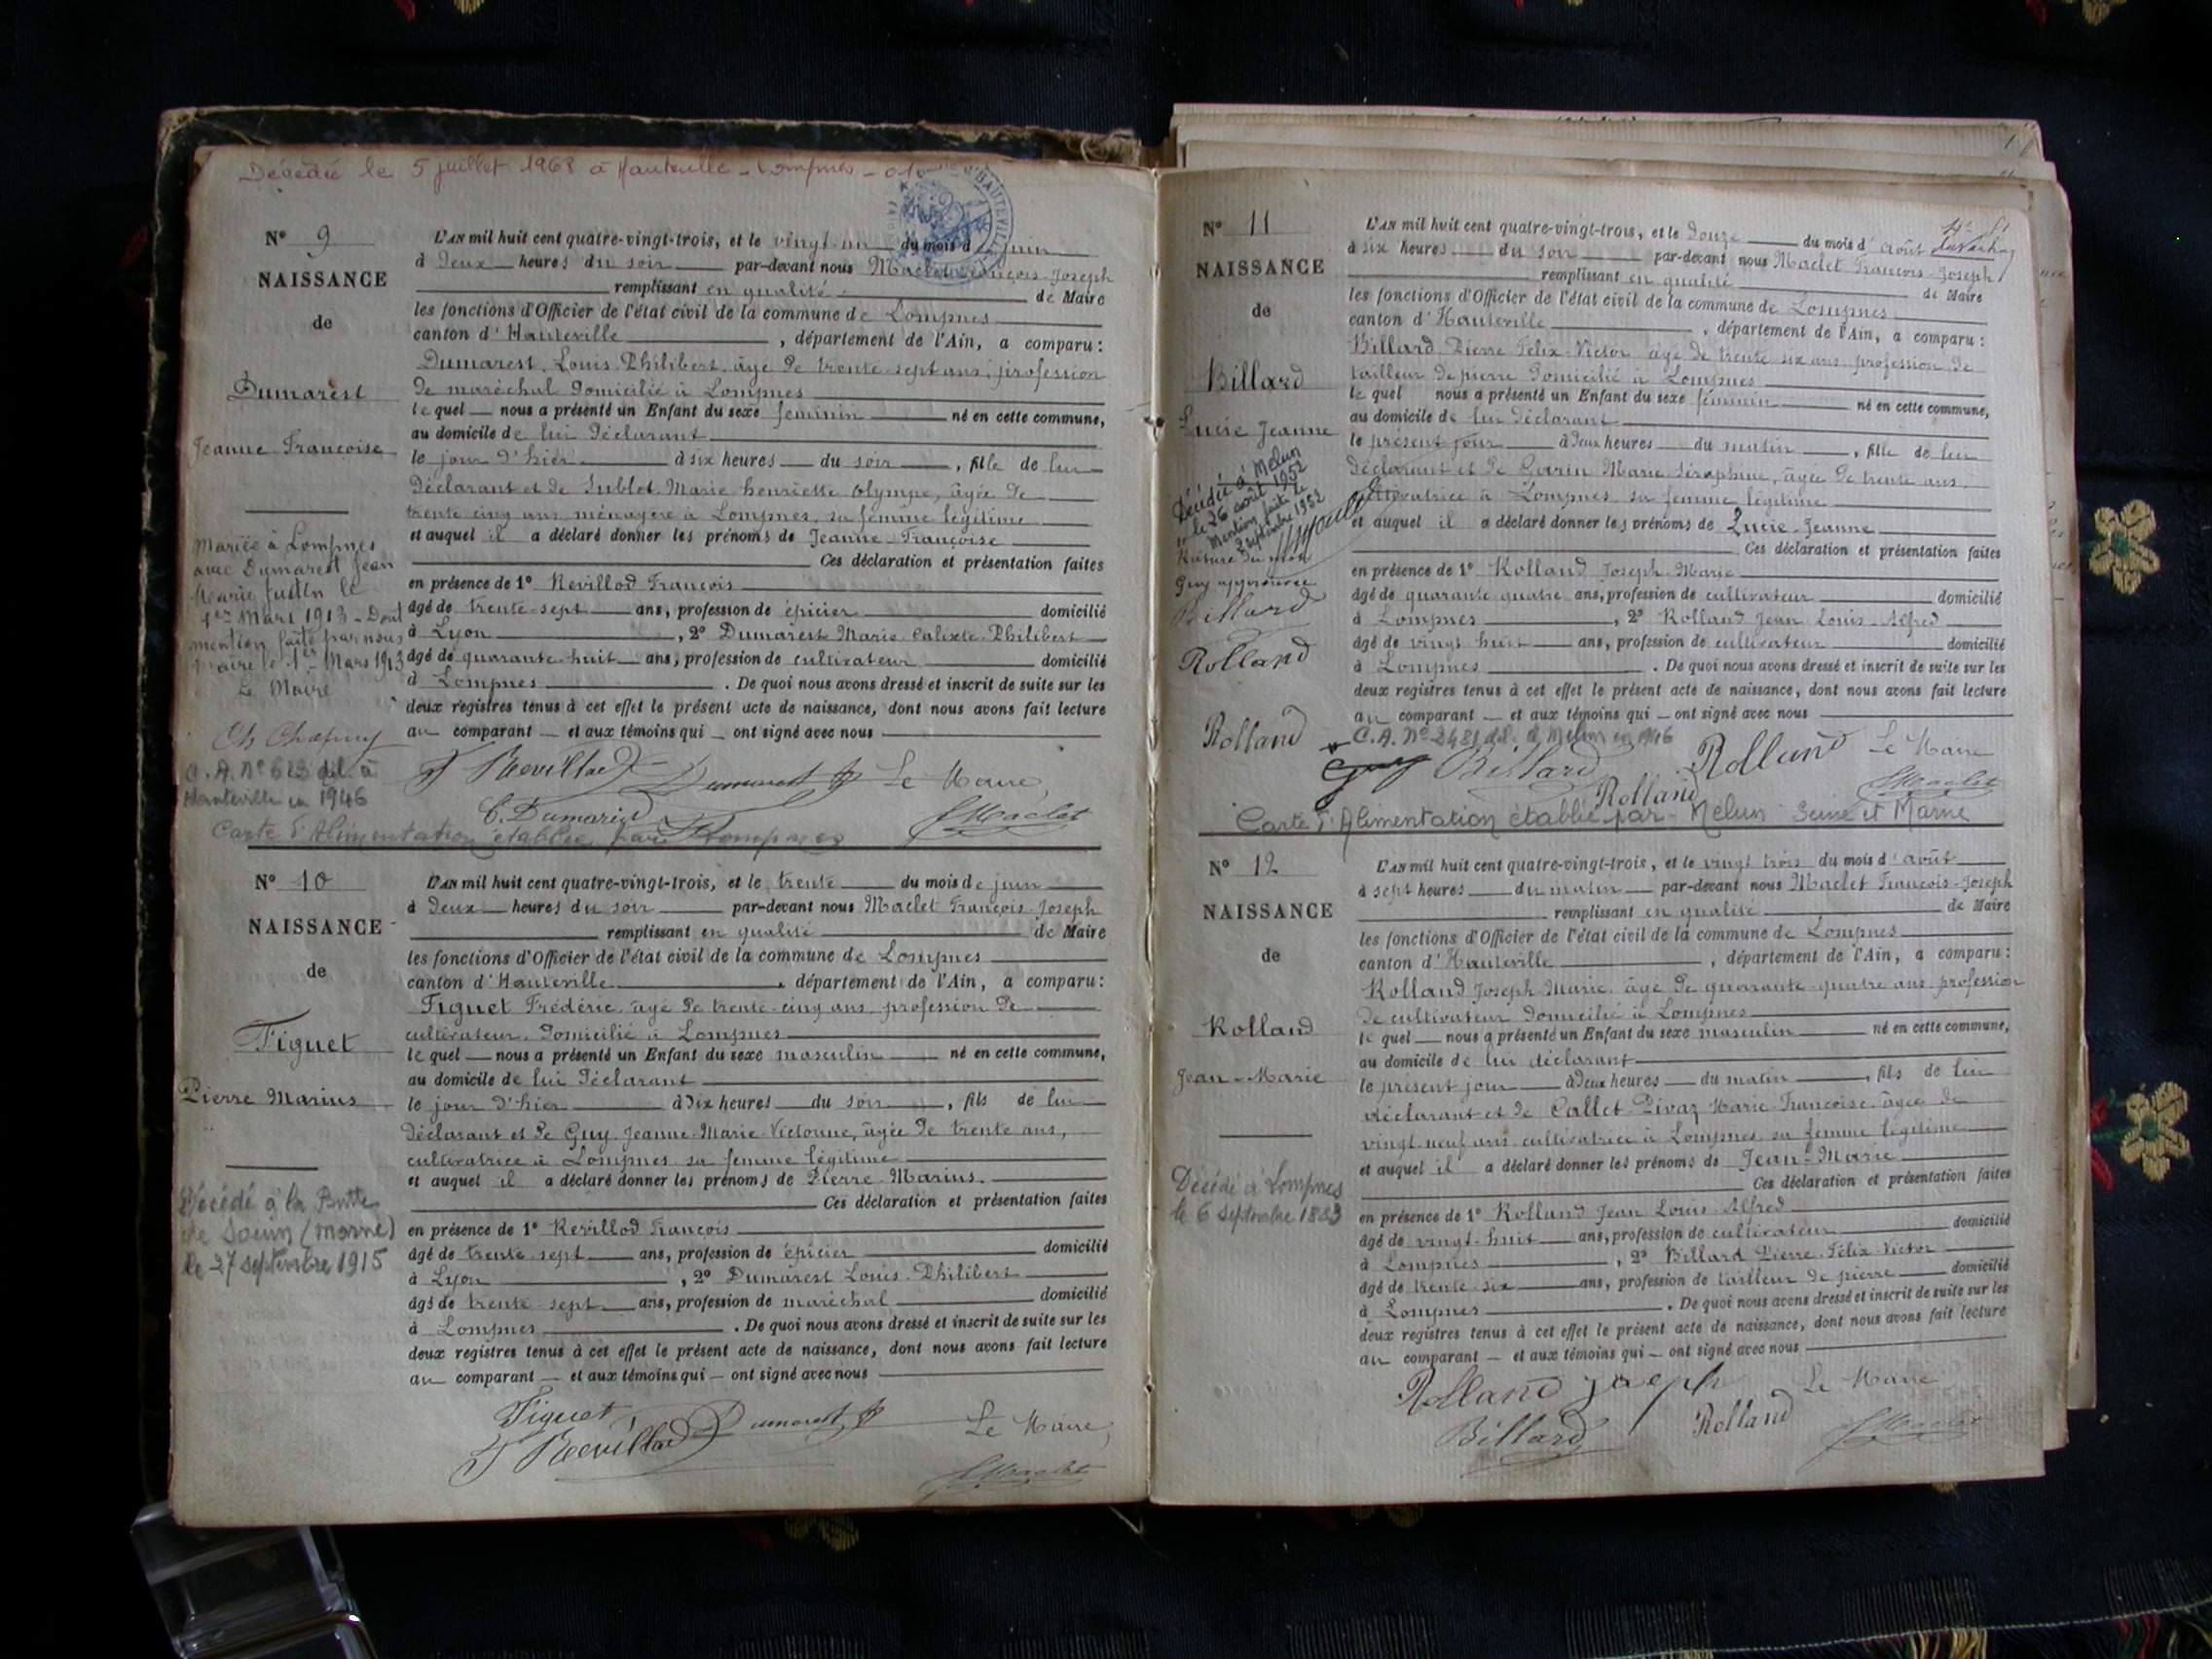 Décédée le 5 juillet 1968 à Hauteville-Lompnes - 01
N° 9
NAISSANCE
de
Dumarest
Jeanne Françoise
Mariée à Lompnes
avec Dumarest Jean
Marie Justin le
1er Mars 1913 - Dont
mention faite par nous
Maire le 1er Mars 1913
Le Maire
C.A. N° 623 dél. à
Hauteville en 1946
L'AN mil huit cent quatre-vingt-trois, et le vingt-un du mois de juin
à deux heures du soir par-devant nous Maclet François-Joseph
remplissant en qualité de Maire
les fonctions d'Officier de l'état civil de la commune de Lompnes
canton d'Hauteville, département de l'Ain, a comparu:
Dumarest, Louis-Philibert, âgé de trente-sept ans, profession
de maréchal domicilié à Lompnes
le quel nous a présenté un Enfant du sexe féminin né en cette commune,
au domicile de lui déclarant
le jour d'hier à six heures du soir, fille de lui
déclarant et de Sublet Marie henriette olympe, âgée de
trente cinq ans ménagère à Lompnes, sa femme légitime
et auquel il a déclaré donner les prénoms de Jeanne-Françoise
Ces déclaration et présentation faites
en présence de 1° Revillod François
âgé de trente-sept ans, profession de épicier domicilié
à Lyon, 2° Dumarest Marie-Calixte-Philibert
âgé de quarante-huit ans, profession de cultivateur domicilié
à Lompnes. De quoi nous avons dressé et inscrit de suite sur les
deux registres tenus à cet effet le présent acte de naissance, dont nous avons fait lecture
au comparant et aux témoins qui ont signé avec nous
F Revillod Dumarest Le Maire,
C. Dumarest F Maclet
Carte d'Alimentation établie par Lompnes
N° 10
NAISSANCE
de
Figuet
Pierre Marius
Décédé à la Butte
de Souin (Marne)
le 27 septembre 1915
L'AN mil huit cent quatre-vingt-trois, et le trente du mois de juin
à deux heures du soir par-devant nous Maclet François-Joseph
remplissant en qualité de Maire
les fonctions d'Officier de l'état civil de la commune de Lompnes
canton d'Hauteville, département de l'Ain, a comparu:
Figuet Frédéric, âgé de trente-cinq ans, profession de
cultivateur, domicilié à Lompnes
le quel nous a présenté un Enfant du sexe masculin né en cette commune,
au domicile de lui déclarant
le jour d'hier à dix heures du soir, fils de lui
déclarant et de Guy Jeanne-Marie-Victorine, âgée de trente ans,
cultivatrice à Lompnes sa femme légitime
et auquel il a déclaré donner les prénoms de Pierre-Marius.
Ces déclaration et présentation faites
en présence de 1° Revillod François
âgé de trente-sept ans, profession de épicier domicilié
à Lyon, 2° Dumarest Louis-Philibert
âgé de trente-sept ans, profession de maréchal domicilié
à Lompnes. De quoi nous avons dressé et inscrit de suite sur les
deux registres tenus à cet effet le présent acte de naissance, dont nous avons fait lecture
au comparant et aux témoins qui ont signé avec nous
Figuet Dumarest Le Maire,
F Revillod F Maclet
N° 11
NAISSANCE
de
Billard
Lucie Jeanne
Décédée à Melun
le 26 août 1952
Mention faite le
2 septembre 1952
Rature du mot
Guy approuvée
Billard
Rolland
Rolland
L'AN mil huit cent quatre-vingt-trois, et le douze du mois d'août
à six heures du soir par-devant nous Maclet François-Joseph
remplissant en qualité de Maire
les fonctions d'Officier de l'état civil de la commune de Lompnes
canton d'Hauteville, département de l'Ain, a comparu:
Billard Pierre Félix-Victor âgé de trente-six ans, profession de
tailleur de pierre domicilié à Lompnes
le quel nous a présenté un Enfant du sexe féminin né en cette commune,
au domicile de lui déclarant
le présent jour à deux heures du matin, fille de lui
déclarant et de Marie Séraphine, âgée de trente ans,
cultivatrice à Lompnes sa femme légitime
et auquel il a déclaré donner les prénoms de Lucie-Jeanne
Ces déclaration et présentation faites
en présence de 1° Rolland Joseph-Marie
âgé de quarante-quatre ans, profession de cultivateur domicilié
à Lompnes, 2° Rolland Jean-Louis-Alfred
âgé de vingt-huit ans, profession de cultivateur domicilié
à Lompnes. De quoi nous avons dressé et inscrit de suite sur les
deux registres tenus à cet effet le présent acte de naissance, dont nous avons fait lecture
au comparant et aux témoins qui ont signé avec nous
C.A. N° 2481 dél. à Melun en 1946
Guy Billard Rolland Le Maire
Rolland F Maclet
Carte d'Alimentation établie par Melun Seine et Marne
N° 12
NAISSANCE
de
Rolland
Jean-Marie
Décédé à Lompnes
le 6 septembre 1883
L'AN mil huit cent quatre-vingt-trois, et le vingt trois du mois d'août
à sept heures du matin par-devant nous Maclet François-Joseph
remplissant en qualité de Maire
les fonctions d'Officier de l'état civil de la commune de Lompnes
canton d'Hauteville, département de l'Ain, a comparu:
Rolland Joseph-Marie, âgé de quarante-quatre ans, profession
de cultivateur domicilié à Lompnes
le quel nous a présenté un Enfant du sexe masculin né en cette commune,
au domicile de lui déclarant
le présent jour à deux heures du matin, fils de lui
déclarant et de Callet-Pivaz Marie-Françoise, âgée de
vingt-neuf ans cultivatrice à Lompnes sa femme légitime
et auquel il a déclaré donner les prénoms de Jean-Marie
Ces déclaration et présentation faites
en présence de 1° Rolland Jean-Louis-Alfred
âgé de vingt-huit ans, profession de cultivateur domicilié
à Lompnes, 2° Billard Pierre-Félix-Victor
âgé de trente-six ans, profession de tailleur de pierre domicilié
à Lompnes. De quoi nous avons dressé et inscrit de suite sur les
deux registres tenus à cet effet le présent acte de naissance, dont nous avons fait lecture
au comparant et aux témoins qui ont signé avec nous
Rolland joseph Le Maire
Billard Rolland F Maclet